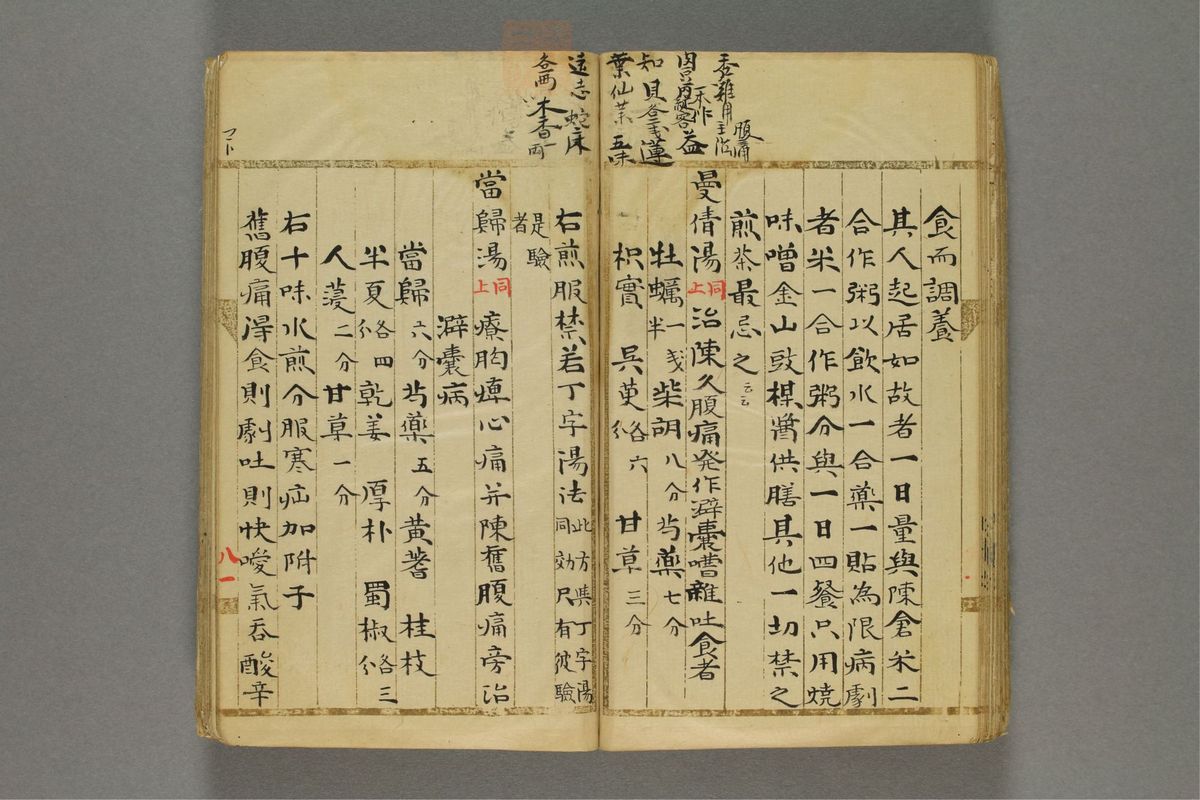 食而調養
其人起居如故者一日量與陳倉米二
合作粥以飲水一合藥一貼為限病劇
者米一合作粥分與一日四餐只用燒
味噌金山豉楳醬供膳其他一切禁之
煎茶最忌之云云
曼倩湯同上治陳久腹痛発作澼囊嘈雜吐食者
牡蠣一戔半柴胡八分芍藥七分
枳實 呉茰各六分 甘草三分
右煎服禁若丁字湯法此方準丁字湯同効尺有彼驗
是驗者
當歸湯同上療胸痺心痛并陳舊腹痛旁治
澼囊病
當歸六分芍藥五分黄蓍 桂枝
半夏各四分乾姜 厚朴 蜀椒各三分
人薓二分甘草一分
右十味水煎分服寒疝加附子
舊腹痛得食則劇吐則快噯氣吞酸辛
八一
吞雜月主治腹痛
益
知 貝各三戔蓮
葉仙茅五味
遠志蛇床
各兩木香一兩